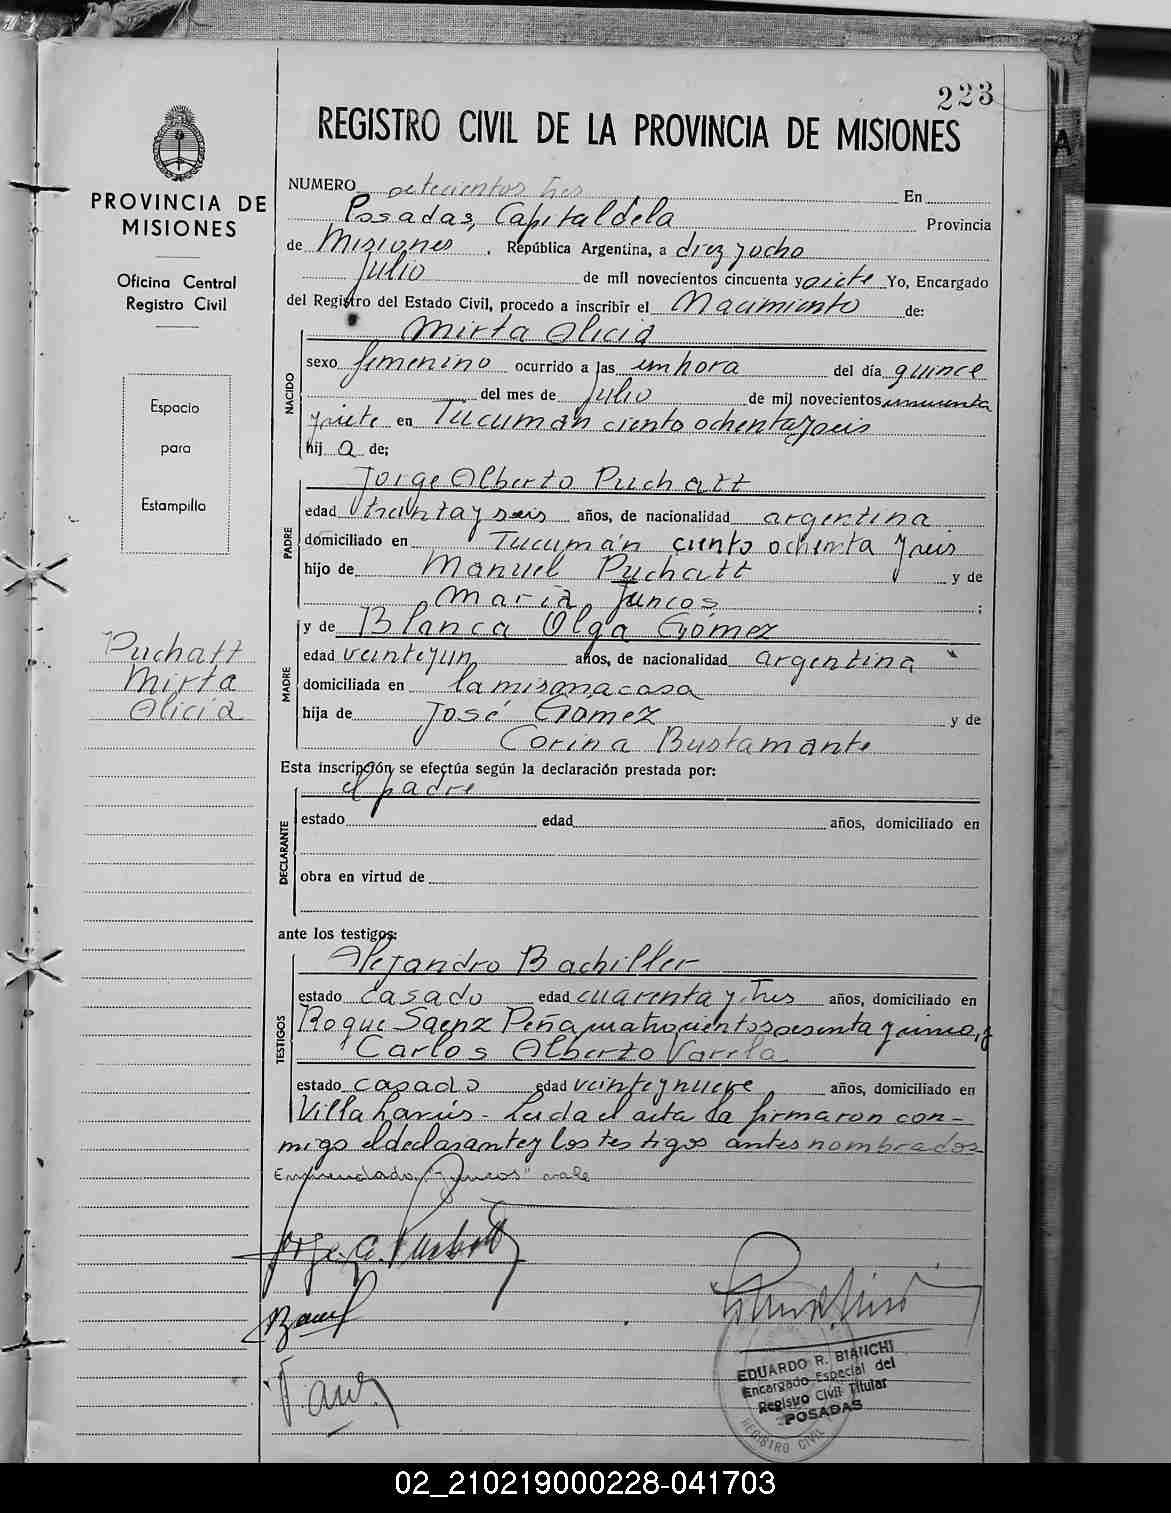 223
REGISTRO CIVIL DE LA PROVINCIA DE MISIONES
PROVINCIA DE
MISIONES
Oficina Central
Registro Civil
Espacio
para
Estampilla
Puchatt
Mirta
Alicia
NUMERO setecientos tres En
Posadas, Capital de la Provincia
de Misiones, República Argentina, a diez y ocho
Julio de mil novecientos cincuenta y siete Yo, Encargado
del Registro del Estado Civil, procedo a inscribir el Nacimiento de:
NACIDO
Mirta Alicia
sexo femenino ocurrido a las un hora del día quince
del mes de Julio de mil novecientos cincuenta
y siete en Tucumán ciento ochenta y seis
hij a de;
PADRE
Jorge Alberto Puchatt
edad treinta y seis años, de nacionalidad argentina
domiciliado en Tucumán ciento ochenta y seis
hijo de Manuel Puchatt y de
María Juncos ;
MADRE
y de Blanca Olga Gómez
edad veinte y un años, de nacionalidad argentina
domiciliada en la misma casa
hija de José Gómez y de
Corina Bustamante
Esta inscripción se efectúa según la declaración prestada por:
DECLARANTE
el padre
estado edad años, domiciliado en
obra en virtud de
ante los testigos:
TESTIGOS
Alejandro Bachiller
estado casado edad cuarenta y tres años, domiciliado en
Roque Saenz Peña cuatrocientos sesenta y cinco, y
Carlos Alberto Varela
estado casado edad veinte y nueve años, domiciliado en
Villa Lanús - Leida el acta la firmaron con-
migo el declarante y los testigos antes nombrados
Enmendado "Juncos" vale
Jorge A. Puchatt
EDUARDO R. BIANCHI
Encargado Especial del
Registro Civil Titular
POSADAS
REGISTRO CIVIL
02_210219000228-041703